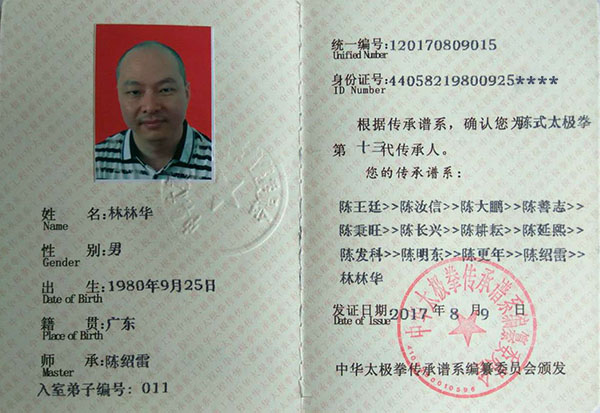 姓 名:林林华
Name
性 别:男
Gender
出 生:1980年9月25日
Date of Birth
籍 贯:广东
Place of Birth
师 承:陈绍雷
Master
入室弟子编号: 011
统一编号:120170809015
Unified Number
身份证号:44058219800925****
ID Number
根据传承谱系，确认您为陈式太极拳
第 十三代传承人。
您的传承谱系:
陈王廷>>陈汝信>>陈大鹏>>陈善志>>
陈秉旺>>陈长兴>>陈耕耘>>陈延熙>>
陈发科>>陈明东>>陈更年>>陈绍雷>>
林林华
发证日期:2017 年 8 月 9 日
Date of Issue
中华太极拳传承谱系编纂委员会颁发
中华太极拳传承谱系编纂委员会